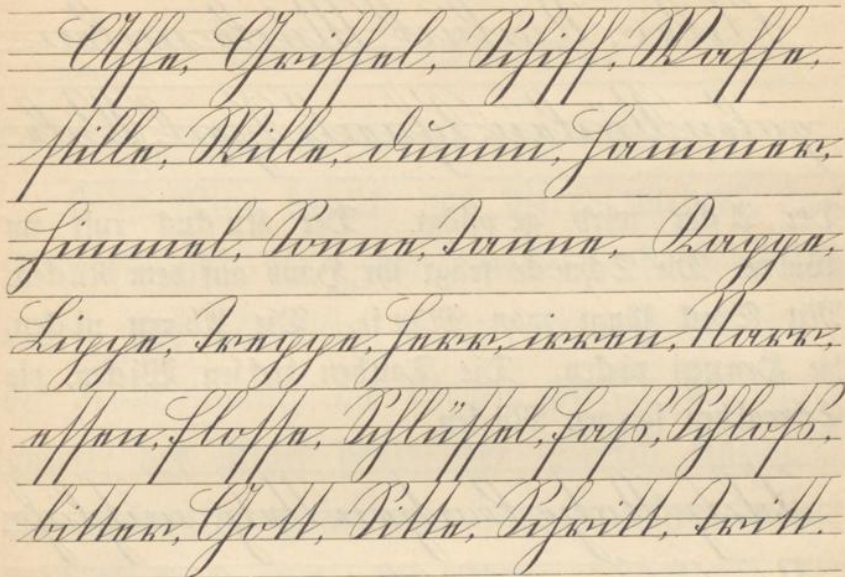 Affe, Griffel, Schiff, Waffe,
stille, Wille, dumm, Hammer,
Himmel, Sonne, Tanne, Rappe,
Lippe, Treppe, Herr, irren, Narr,
essen, Flosse, Schlüssel, Faß, Schloß,
bitter, Gott, Sitte, Schritt, Tritt.